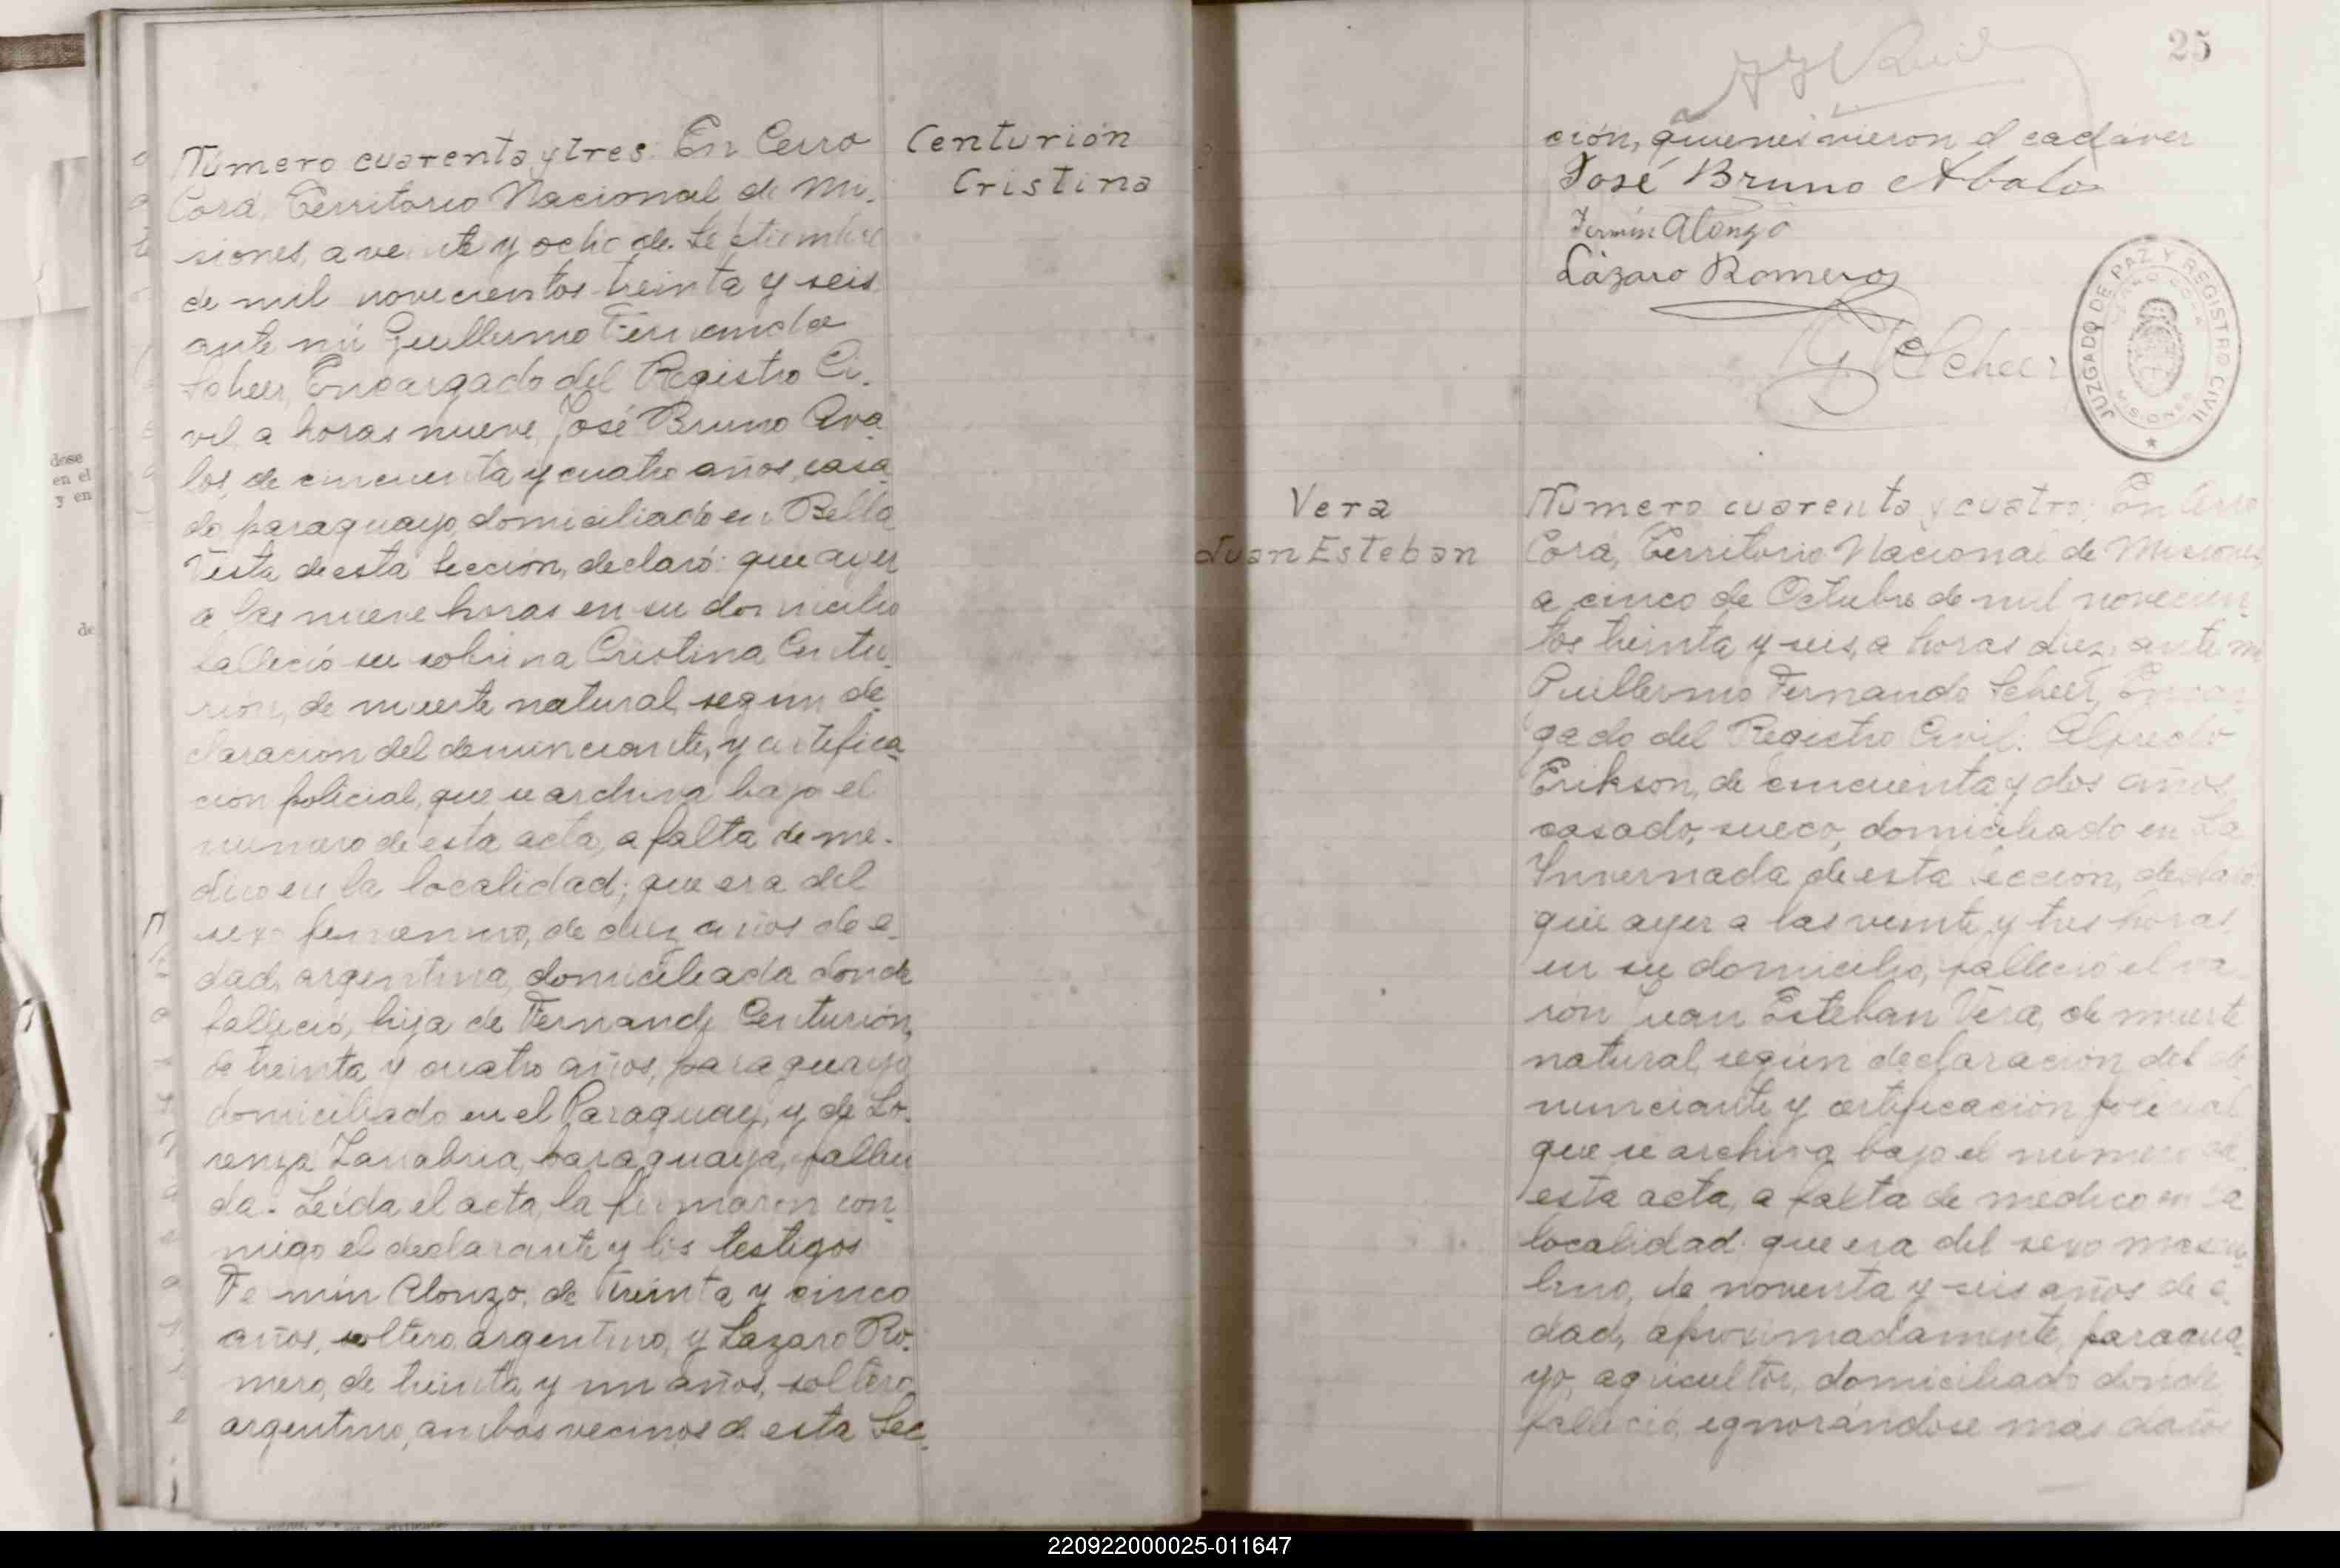 Número cuarenta y tres: En Cerro
Corá, Territorio Nacional de Mi-
siones, a veinte y ocho de Setiembre
de mil novecientos treinta y seis
ante mí Guillermo Fernando
Scheer, Encargado del Registro Ci-
vil, a horas nueve, José Bruno Ava
los, de cincuenta y cuatro años, casa
do paraguayo, domiciliado en Bella
Vista de esta Sección, declaró: que ayer
a las nueve horas en su domicilio
falleció su sobrina Cristina Centu-
rión, de muerte natural, según de-
claración del denunciante, y certifica-
ción policial, que se archiva bajo el
número de esta acta, a falta de mé-
dico en la localidad; que era del
sexo femenino, de diez años de e-
dad, argentina, domiciliada donde
falleció, hija de Fernando Centurión,
de treinta y cuatro años, paraguayo
domiciliado en el Paraguay, y de Lo-
renza Zanabria, paraguaya, falleci
da. Leída el acta, la firmaron con-
migo el declarante y los testigos
Fermín Alonzo, de treinta y cinco
años, soltero, argentino, y Lazaro Ro-
mero, de treinta y un años, soltero,
argentino, ambos vecinos de esta Sec-
Centurión
Cristina
25
ción, quienes vieron el cadáver
José Bruno Abalos
Fermín Alonzo
Lázaro Romero
G F Scheer
JUZGADO DE PAZ Y REGISTRO CIVIL
CERRO CORA
MISIONES
Vera
Juan Esteban
Número cuarenta y cuatro: En Cerro
Corá, Territorio Nacional de Misiones
a cinco de Octubre de mil novecien-
tos treinta y seis, a horas diez, ante mí
Guillermo Fernando Scheer, Encar-
gado del Registro Civil. Alfredo
Erikson, de cincuenta y dos años
casado, sueco, domiciliado en La
Invernada de esta sección, declaró:
que ayer a las veinte y tres horas
en su domicilio, falleció el va
rón Juan Esteban Vera, de muerte
natural, según declaración del de
nunciante y certificación policial
que se archiva bajo el número de
esta acta, a falta de médico en la
localidad: que era del sexo mascu-
lino, de noventa y seis años de e-
dad, aproximadamente, paragua-
yo, agricultor, domiciliado donde
falleció, ignorándose más datos
dose
en el
y en
de
220922000025-011647